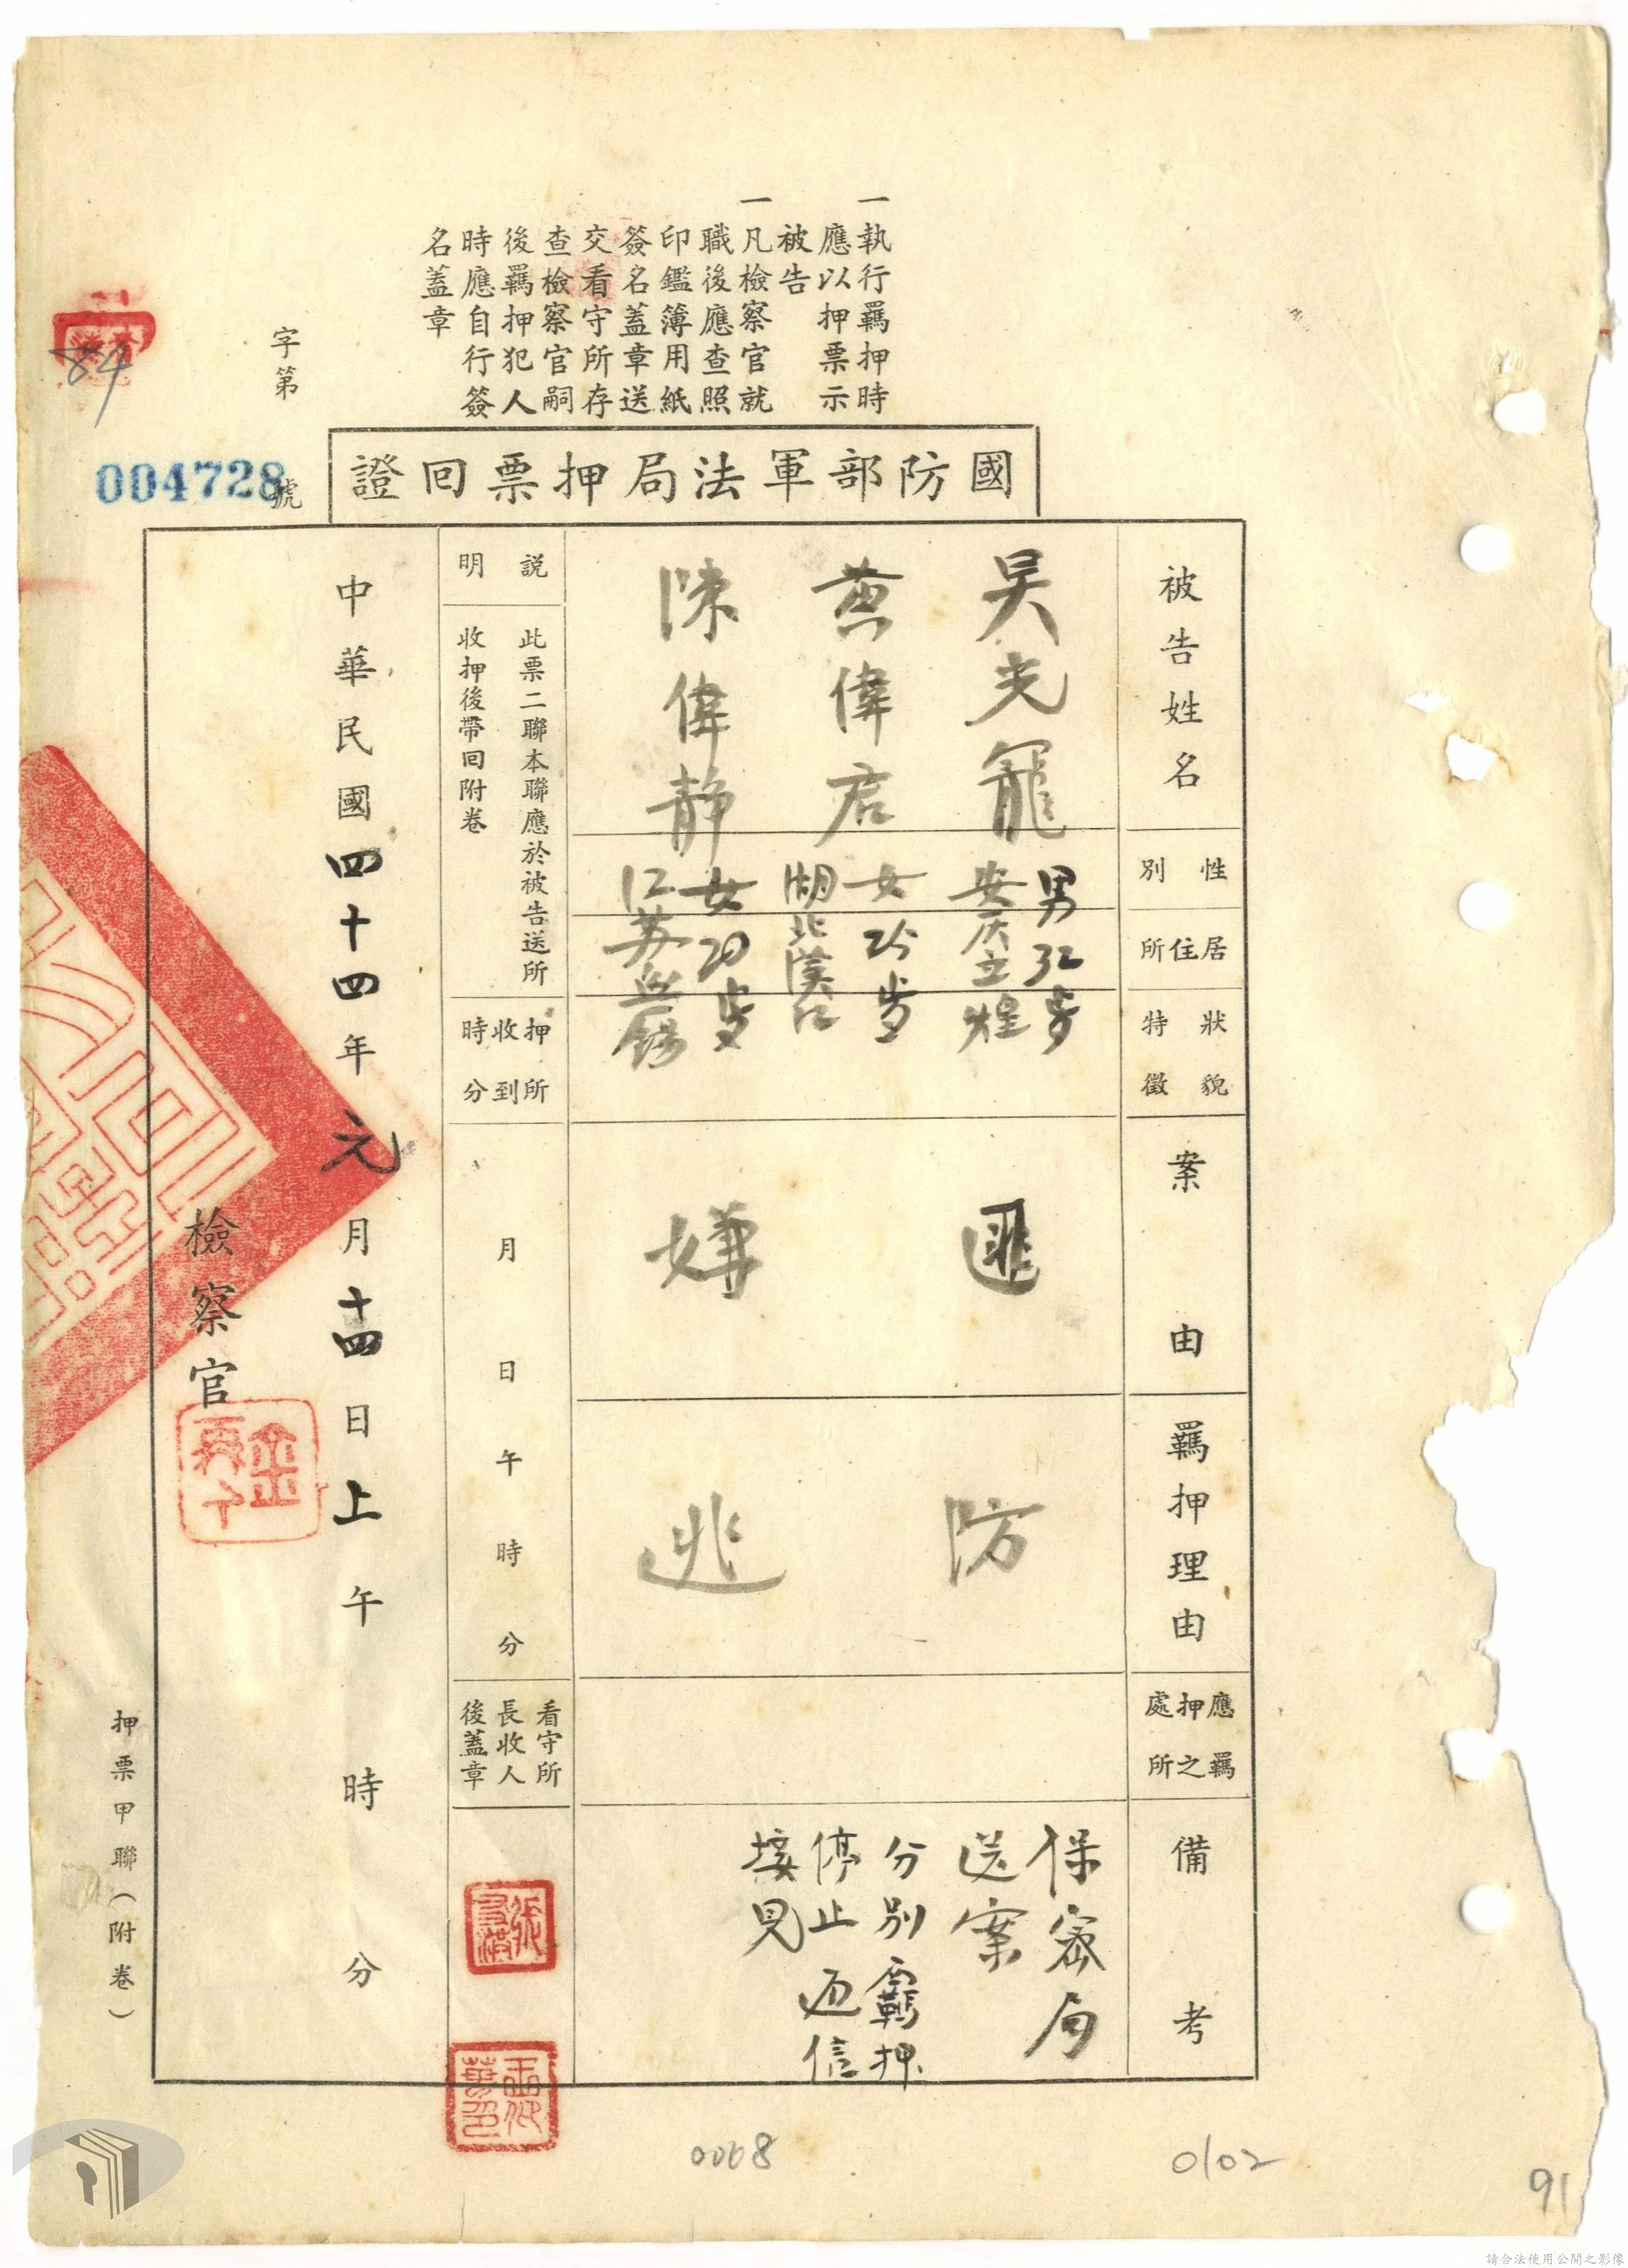 一執行羈押時
應以押票示
被告
一凡檢察官就
職後應查照
印鑑簿用紙
簽名蓋章送
交看守所存
查檢察官嗣
後羈押犯人
時應自行簽
名蓋章
字第
004728號
84
國防部軍法局押票回證
被告姓名
吴光寵
黄偉君
陳偉静
性別
居住所
狀貌特徵
男32歲
安庆立煌
女25歲
湖北漢口
女20歲
江苏無錫
案由
匪嫌
羈押理由
防逃
應羈押之處所
備考
保密局
送案
分別羈押
停止通信
接見
說明
此票二聯本聯應於被告送所
收押後帶回附卷
押所收到時分
月日午時分
看守所
長收人
後蓋章
中華民國四十四年元月十四日上午時分
檢察官
押票甲聯(附卷)
0068
0102
91
請合法使用公開之影像